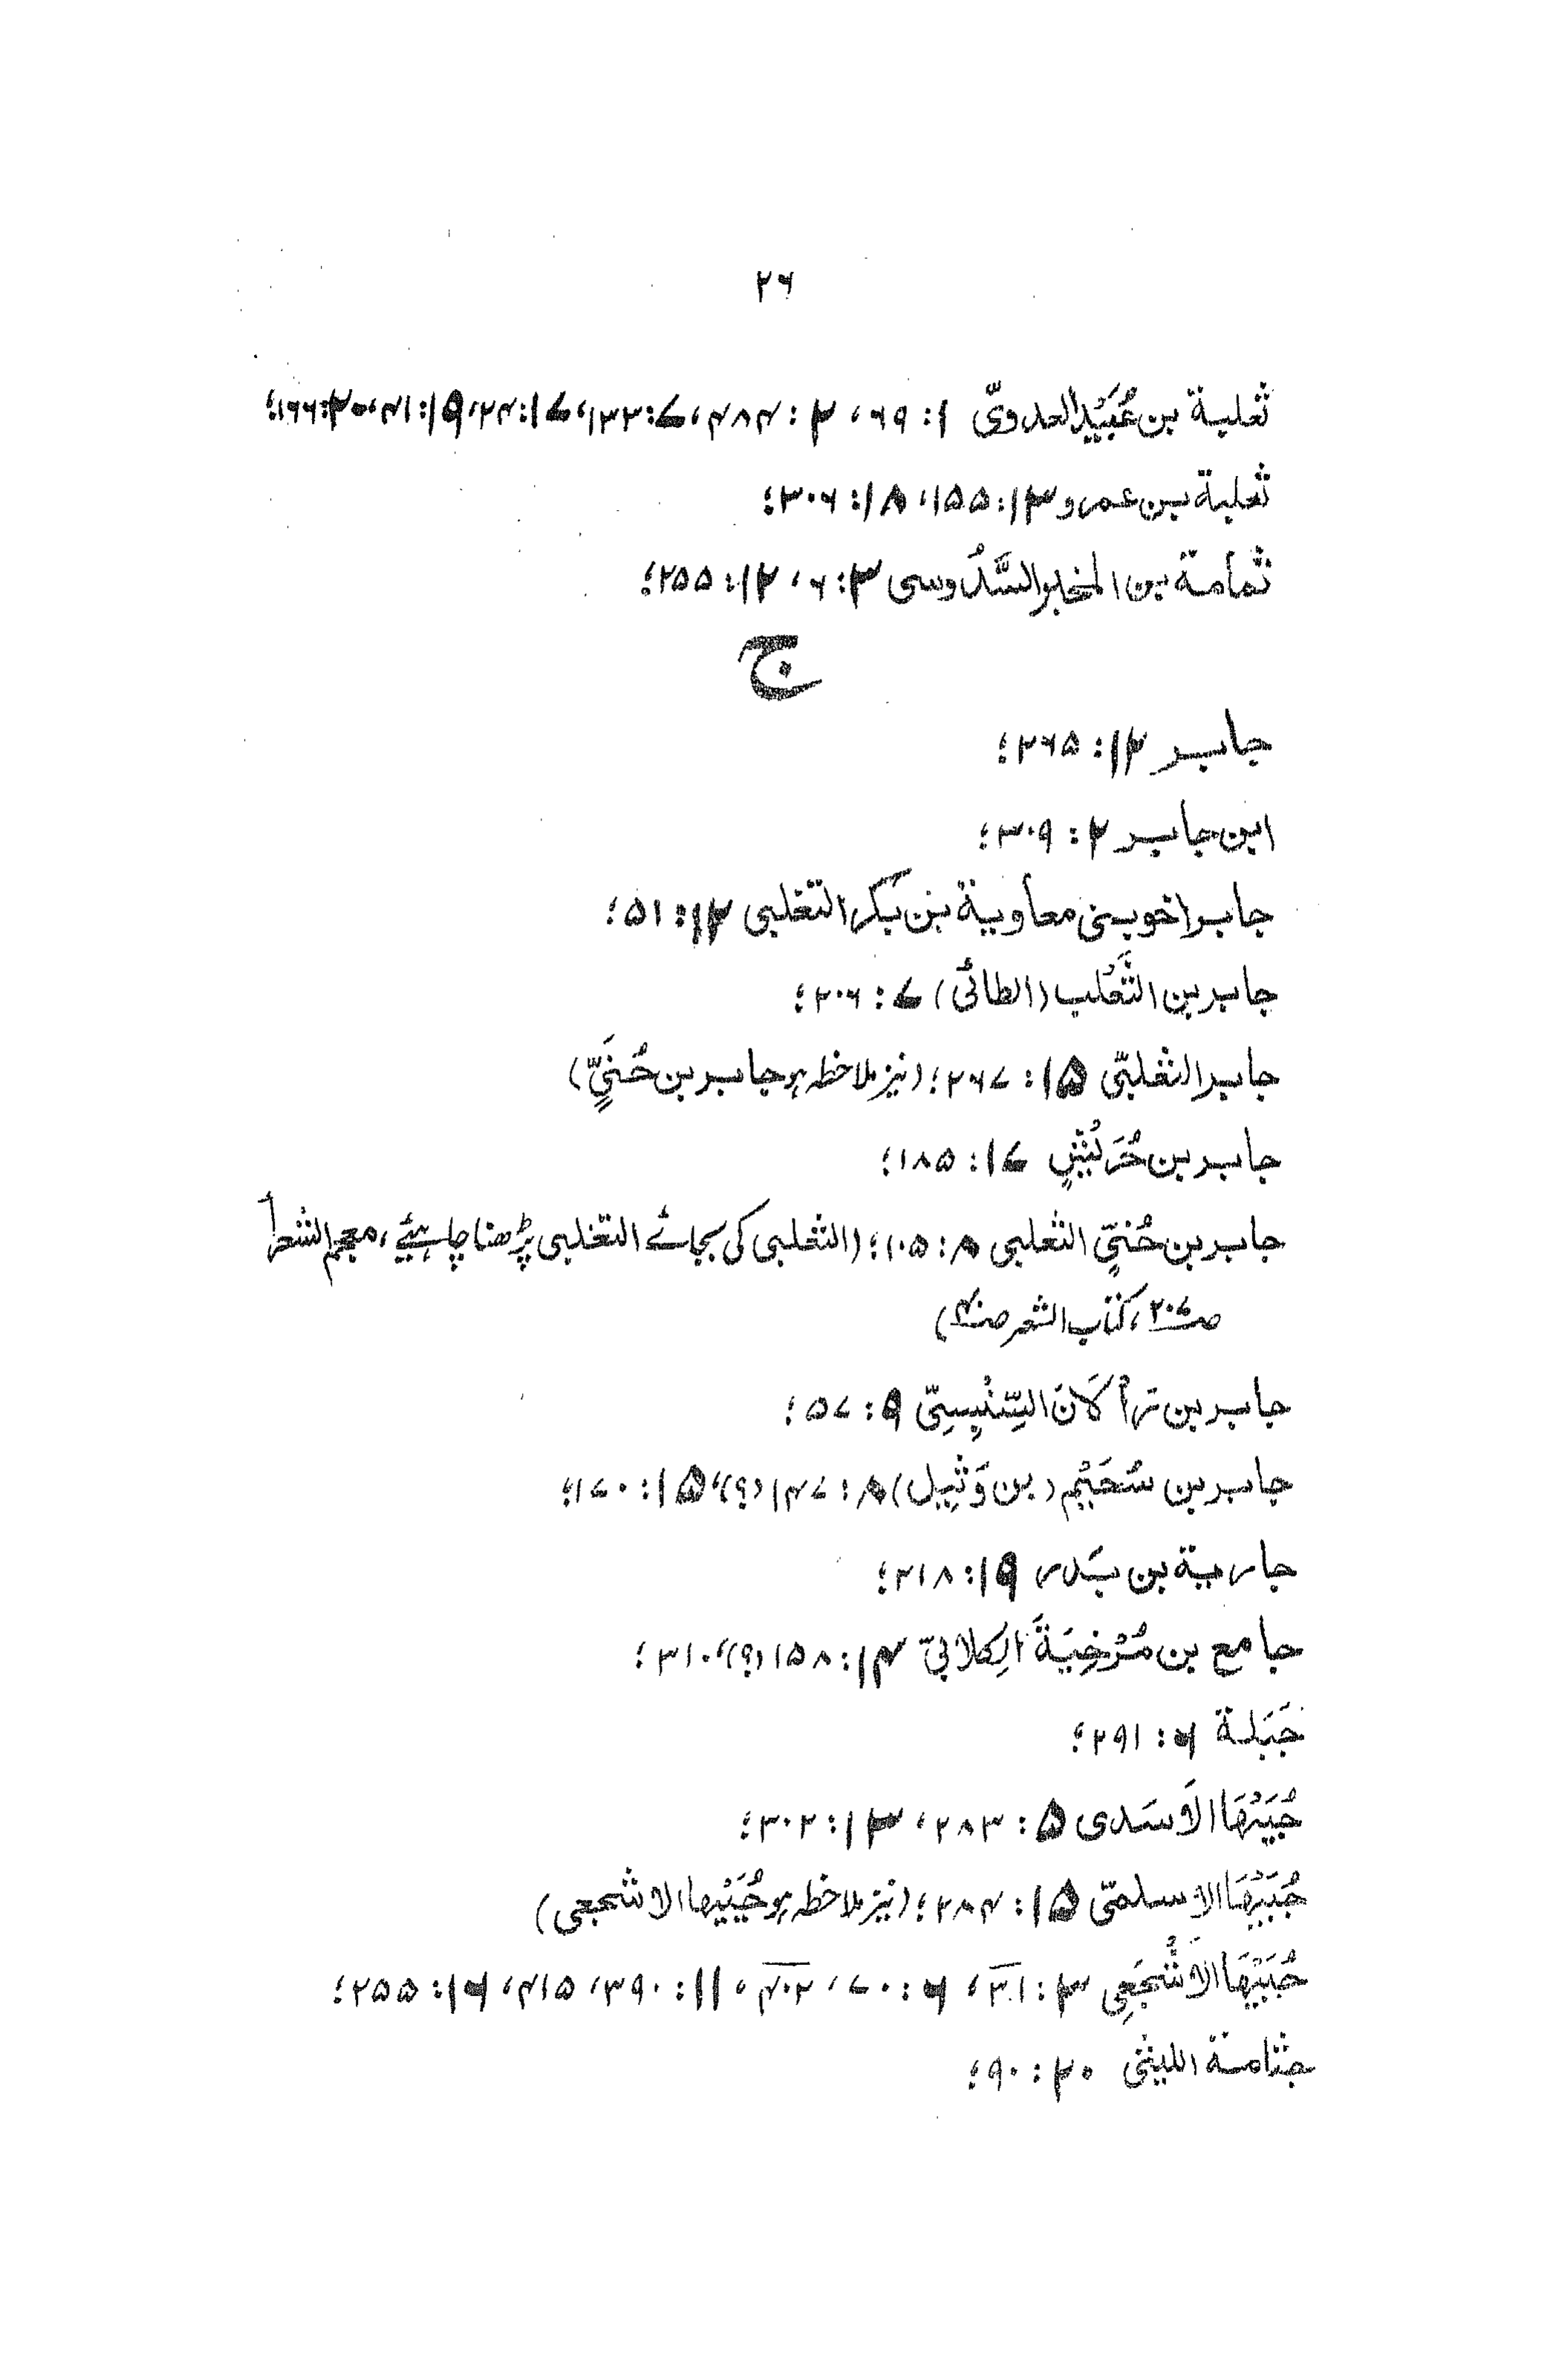 ۲۶
ثعلبة بن عُبَيْد العدویّ ۱: ۶۹، ۲: ۴۸۴، ۷: ۱۳۲، ۱۷: ۲۴، ۱۹: ۴۱، ۲۰: ۱۶۶؛
ثعلبة بن عمرو ۱۳: ۱۵۵، ۱۸: ۳۰۶؛
ثمامة بن المخبر السَّدُوسی ۳: ۶، ۱۲: ۲۵۵؛
ج
جابر ۱۲: ۲۶۵؛
ابن جابر ۲: ۳۰۹؛
جابر اخو بنی معاویة بن بکر التغلبی ۱۲: ۵۱؛
جابر بن الثَّعْلَب (الطائی) ۷: ۲۰۶؛
جابر الثعلبیّ ۱۵: ۲۶۷؛ (نیز ملاحظہ ہو جابر بن حُنَیٍّ)
جابر بن حُرَیْشٍ ۱۷: ۱۸۵؛
جابر بن حُنَیٍّ الثعلبی ۸: ۱۰۵؛ (الثعلبی کی بجائے التغلبی پڑھنا چاہیئے، معجم الشعرا
صـ۲۰۷، کتاب الشعر صـ)
جابر بن رَأْلَانَ السِّنْبِسِیّ ۹: ۵۷؛
جابر بن سُحَیْم (بن وَثِیل) ۸: ۱۴۷ (؟)، ۱۵: ۱۷۰؛
جاریة بن بَدر ۱۹: ۲۱۸؛
جامع بن مُرْخِیَةَ الکِلابیّ ۱۴: ۱۵۸ (؟)، ۳۱۰؛
جَبَلة ۶: ۲۹۱؛
جُبَیْهَا الاَسَدی ۵: ۲۸۳، ۱۳: ۳۰۲؛
جُبَیْهَا الاسلمیّ ۱۵: ۲۸۴؛ (نیز ملاحظہ ہو جُبَیْها الاشجعی)
جُبَیْهَا الاَشْجَعِی ۳: ۳۱، ۶: ۷۰، ۴۰۲، ۱۱: ۳۹۰، ۴۱۵، ۱۶: ۲۵۵؛
جثامة اللیثی ۲۰: ۹۰؛